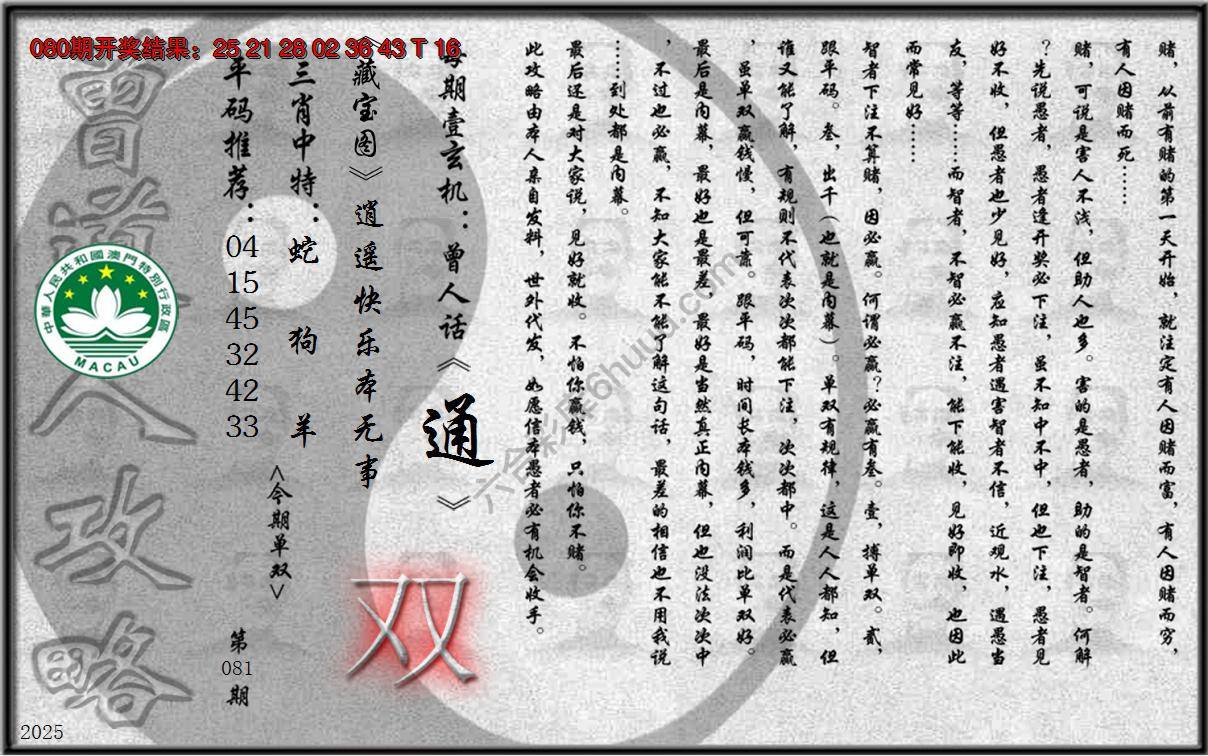 080期开奖结果：25 21 28 02 36 43 T 16
赌，从前有赌的第一天开始，就注定有人因赌而富，有人因赌而穷，
有人因赌而死……
赌，可说是害人不浅，但助人也多。害的是愚者，助的是智者。何解
？先说愚者，愚者逢开奖必下注，虽不知中不中，但也下注，愚者见
好不收，但愚者也少见好，应知愚者遇害智者不信，近观水，遇愚当
友，等等……而智者，不智必赢不注，能下能收，见好即收，也因此
而常见好……
智者下注不算赌，因必赢。何谓必赢？必赢有叁。壹，搏单双。贰，
跟平码。叁，出千（也就是内幕）。单双有规律，这是人人都知，但
谁又能了解，有规则不代表次次都能下注，次次都中。而是代表必赢
，虽单双赢钱慢，但可靠。跟平码，时间长本钱多，利润比单双好。
最后是内幕，最好也是最差，最好是当然真正内幕，但也没法次次中
，不过也必赢，不知大家能不能了解这句话，最差的相信也不用我说
……到处都是内幕。
最后还是对大家说，见好就收。不怕你赢钱，只怕你不赌。
此攻略由本人亲自发料，世外代发，如愿信本愚者必有机会收手。
每期壹玄机：曾人话《通》
《藏宝图》逍遥快乐本无事
三肖中特：蛇 狗 羊
平码推荐：04 15 45 32 42 33
<今期单双>
双
第081期
曾道人攻略
中華人民共和國澳門特別行政區
MACAU
六合彩库6huuu.com
2025